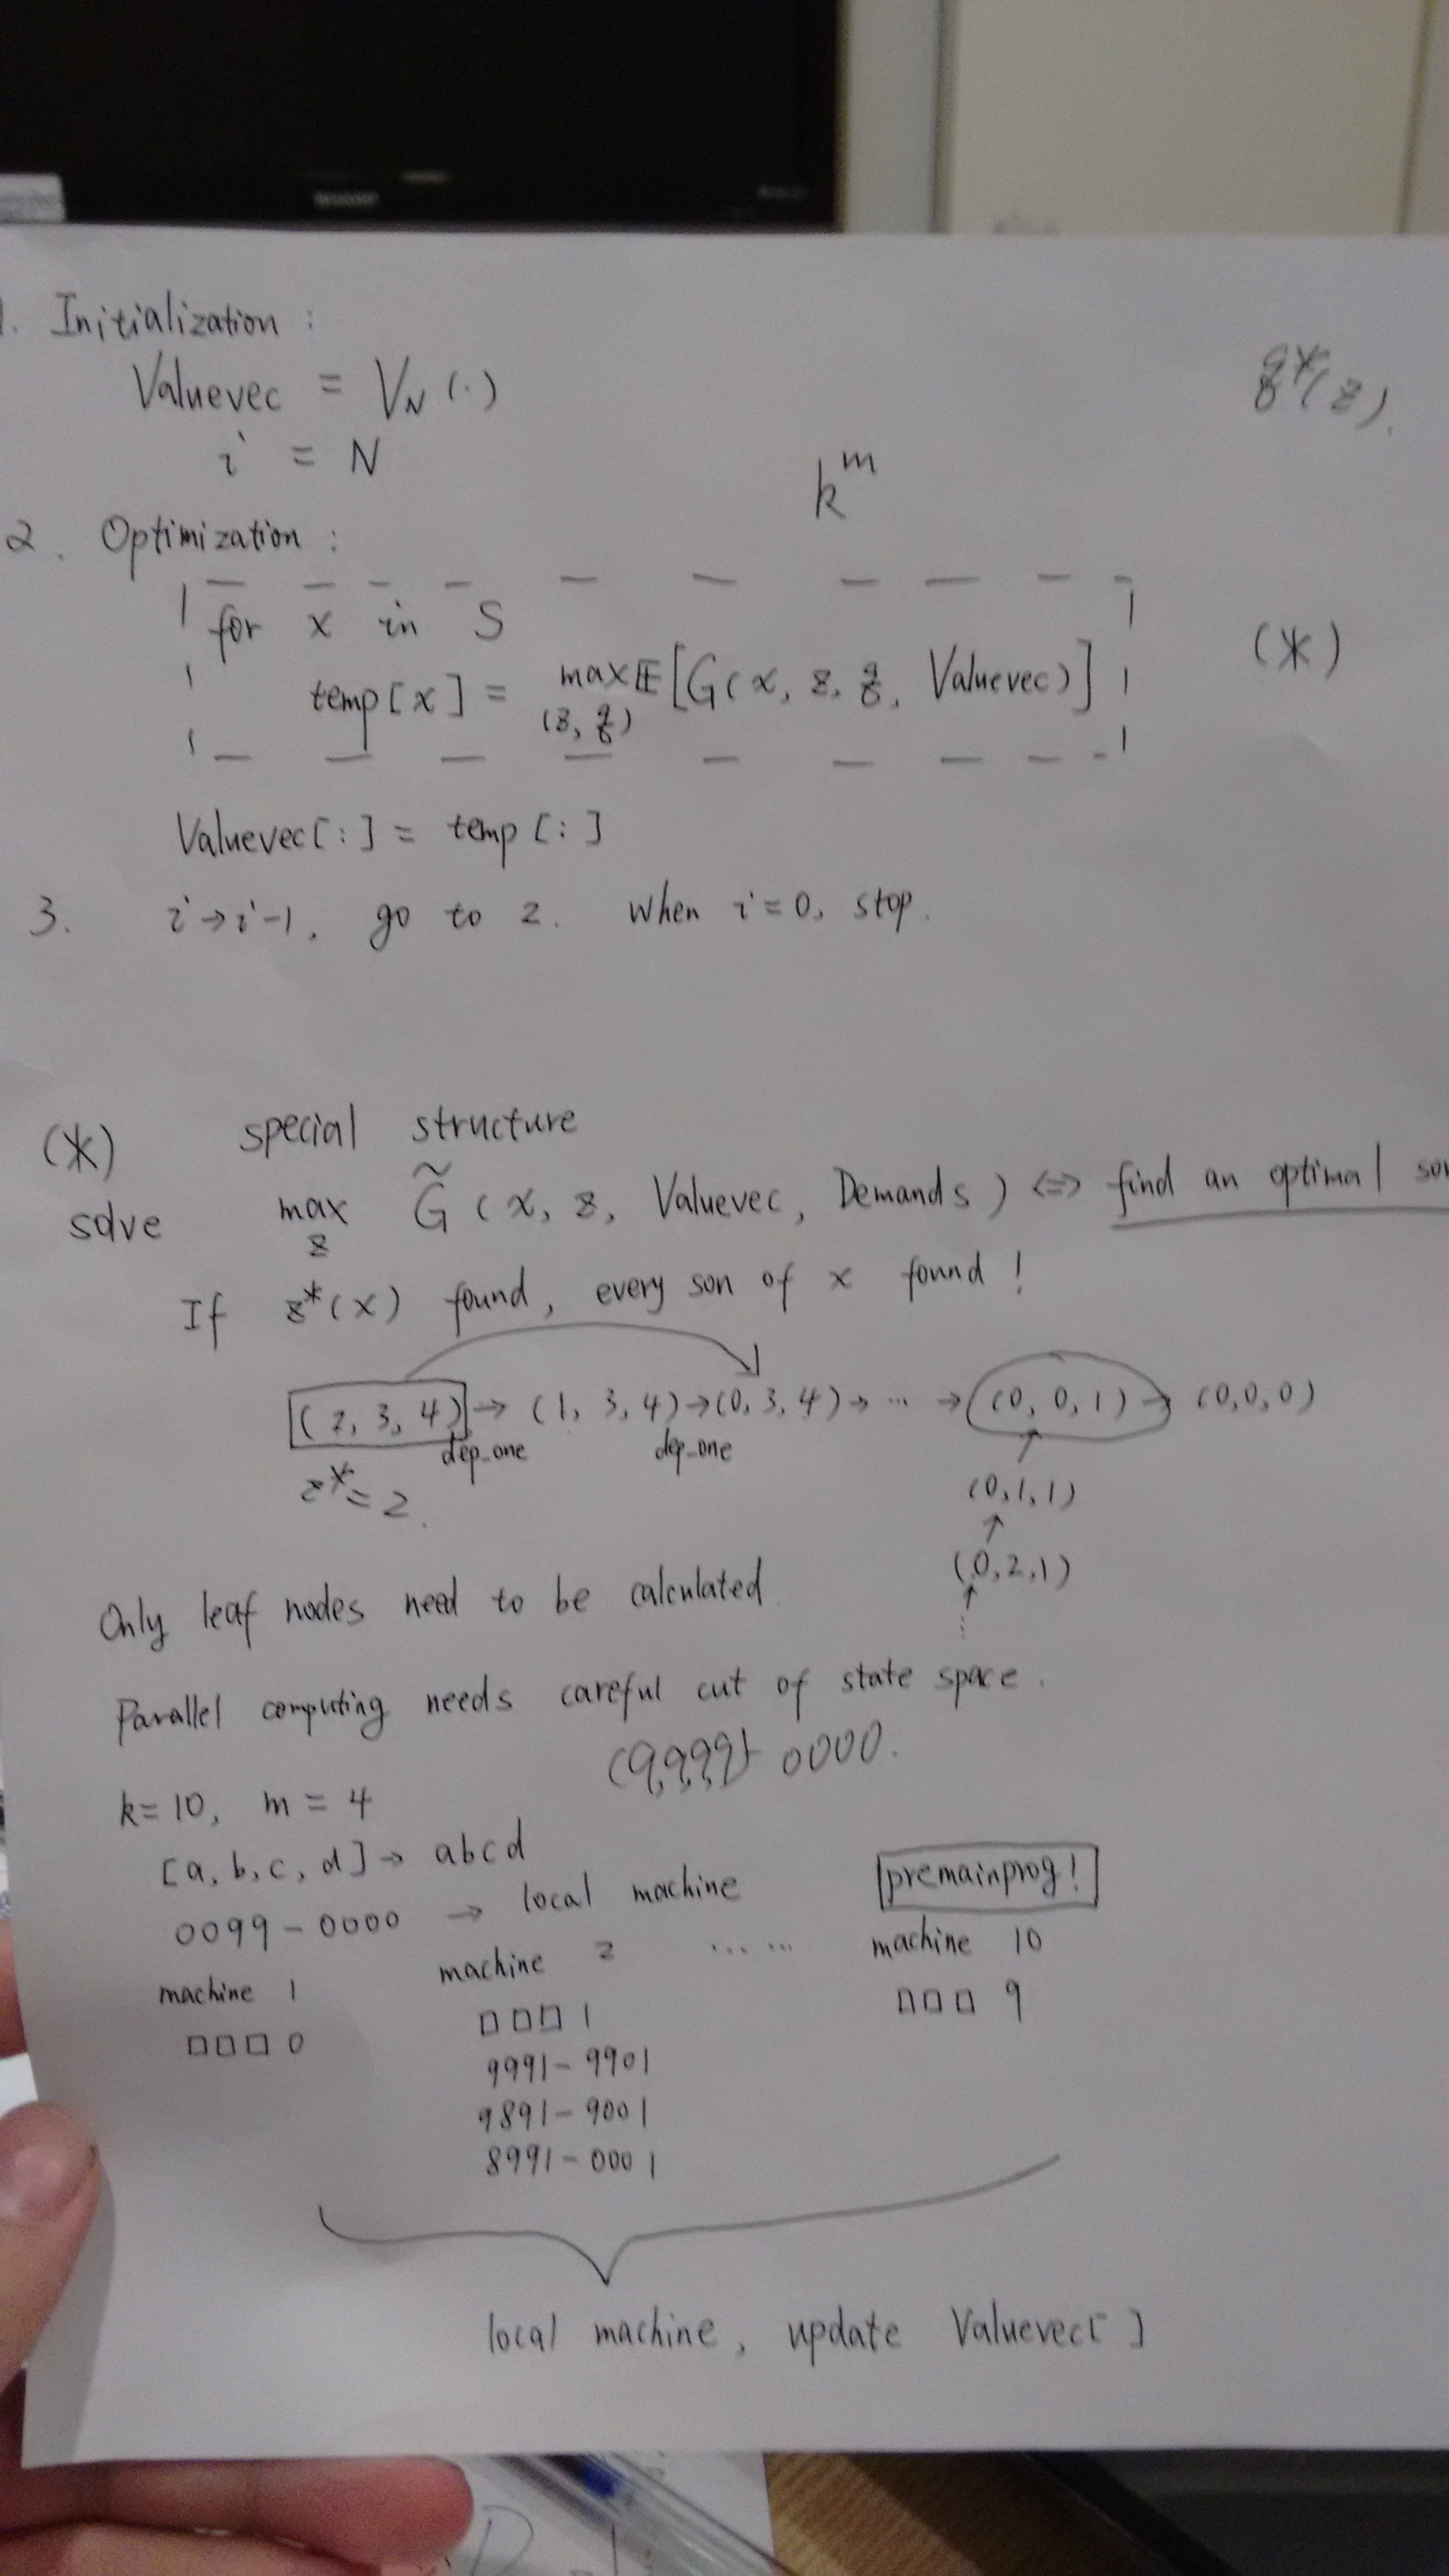 1. Initialization :
Valuevec = V_N (·)
q*(z).
i = N
k^m
2. Optimization :
for x in S
temp[x] = max_(z, q) E[G(x, z, q, Valuevec)] (*)
Valuevec[:] = temp[:]
3. i→i-1, go to 2. when i=0, stop.
(*) special structure
solve max_z G̃ (x, z, Valuevec, Demands) ⇔ find an optimal
If z*(x) found, every son of x found !
(2, 3, 4) → (1, 3, 4) → (0, 3, 4) → ... → (0, 0, 1) → (0,0,0)
dep_one dep_one
z* = 2.
(0,1,1)
(0,2,1)
Only leaf nodes need to be calculated.
Parallel computing needs careful cut of state space.
(9,9,9,9) 0000.
k=10, m = 4
[a, b, c, d] → abcd
premainprog!
0099-0000 → local machine
machine 1 machine 2 ...... machine 10
□□□0 □□□1 □□□9
9991-9901
9891-9001
8991-0001
local machine, update Valuevec[ ]